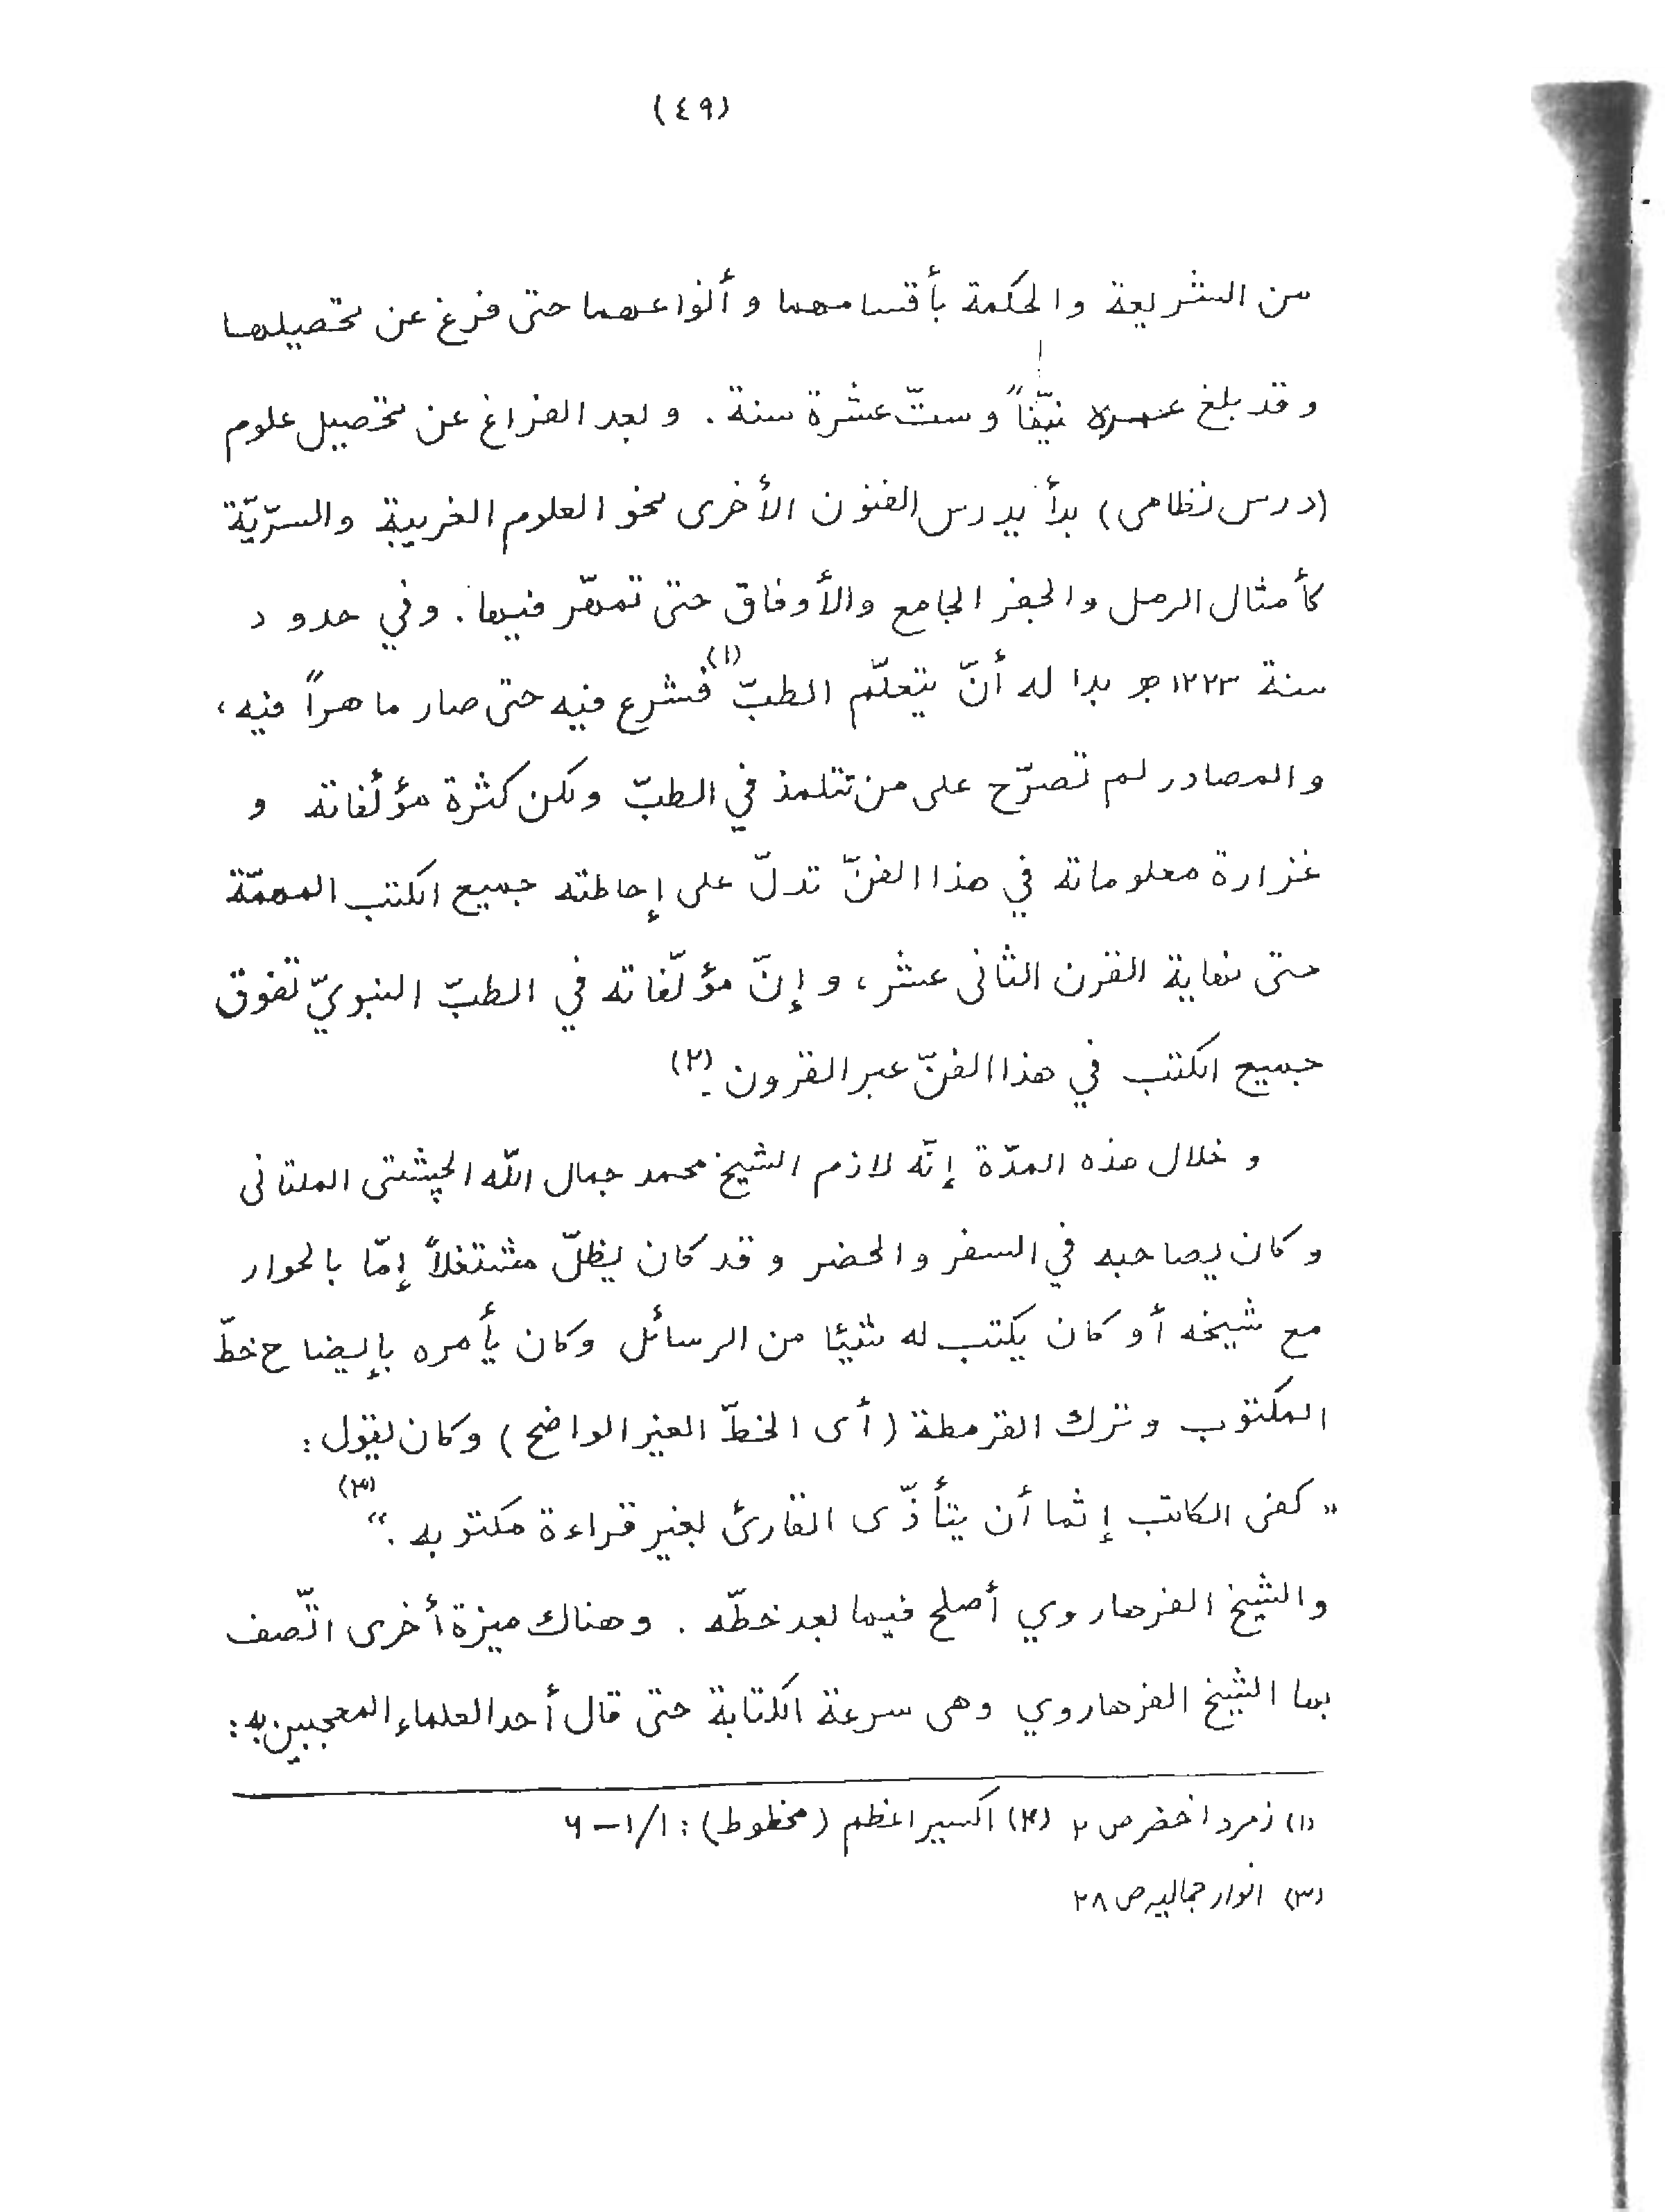 (٤٩)
من الشريعة والحكمة بأقسامهما وأنواعهما حتى فرغ عن تحصيلها
وقد بلغ عمره نيّفاً وستّ عشرة سنة . وبعد الفراغ عن تحصيل علوم
(درس نظامى) بدأ يدرس الفنون الأخرى نحو العلوم الغريبة والسرّيّة
كأمثال الرمل والجفر الجامع والأوفاق حتى تمهّر فيها . وفي حدود
سنة ١٢٢٣هـ بدا له أنّ يتعلّم الطبّ (١) فشرع فيه حتى صار ماهراً فيه ،
والمصادر لم تصرّح على من تتلمذ في الطبّ ولكن كثرة مؤلّفاته و
غزارة معلوماته في هذا الفنّ تدلّ على إحاطته جميع الكتب المهمّة
حتى نهاية القرن الثانى عشر ، وإنّ مؤلّفاته في الطبّ النبويّ تفوق
جميع الكتب في هذا الفنّ عبر القرون . (٢)
و خلال هذه المدّة إنّه لازم الشيخ محمد جمال اللّه الچشتى الملتانى
وكان يصاحبه في السفر والحضر وقد كان يظلّ مشتغلاً إمّا بالحوار
مع شيخه أو كان يكتب له شيئا من الرسائل وكان يأمره بإيضاح خطّ
المكتوب وترك القرمطة (أى الخطّ الغير الواضح) وكان يقول :
" كفى الكاتب إثما أن يتأذّى القارئ بغير قراءة مكتوبه . " (٣)
والشيخ الفرهاروي أصلح فيما بعد خطّه . وهناك ميزة أخرى اتّصف
بها الشيخ الفرهاروي وهى سرعة الكتابة حتى قال أحد العلماء المعجبين به :
(١) زمرد اخضر ص ٢ (٢) اكسير اعظم (مخطوط) : ١/١-٦
(٣) انوار جماليه ص ٢٨